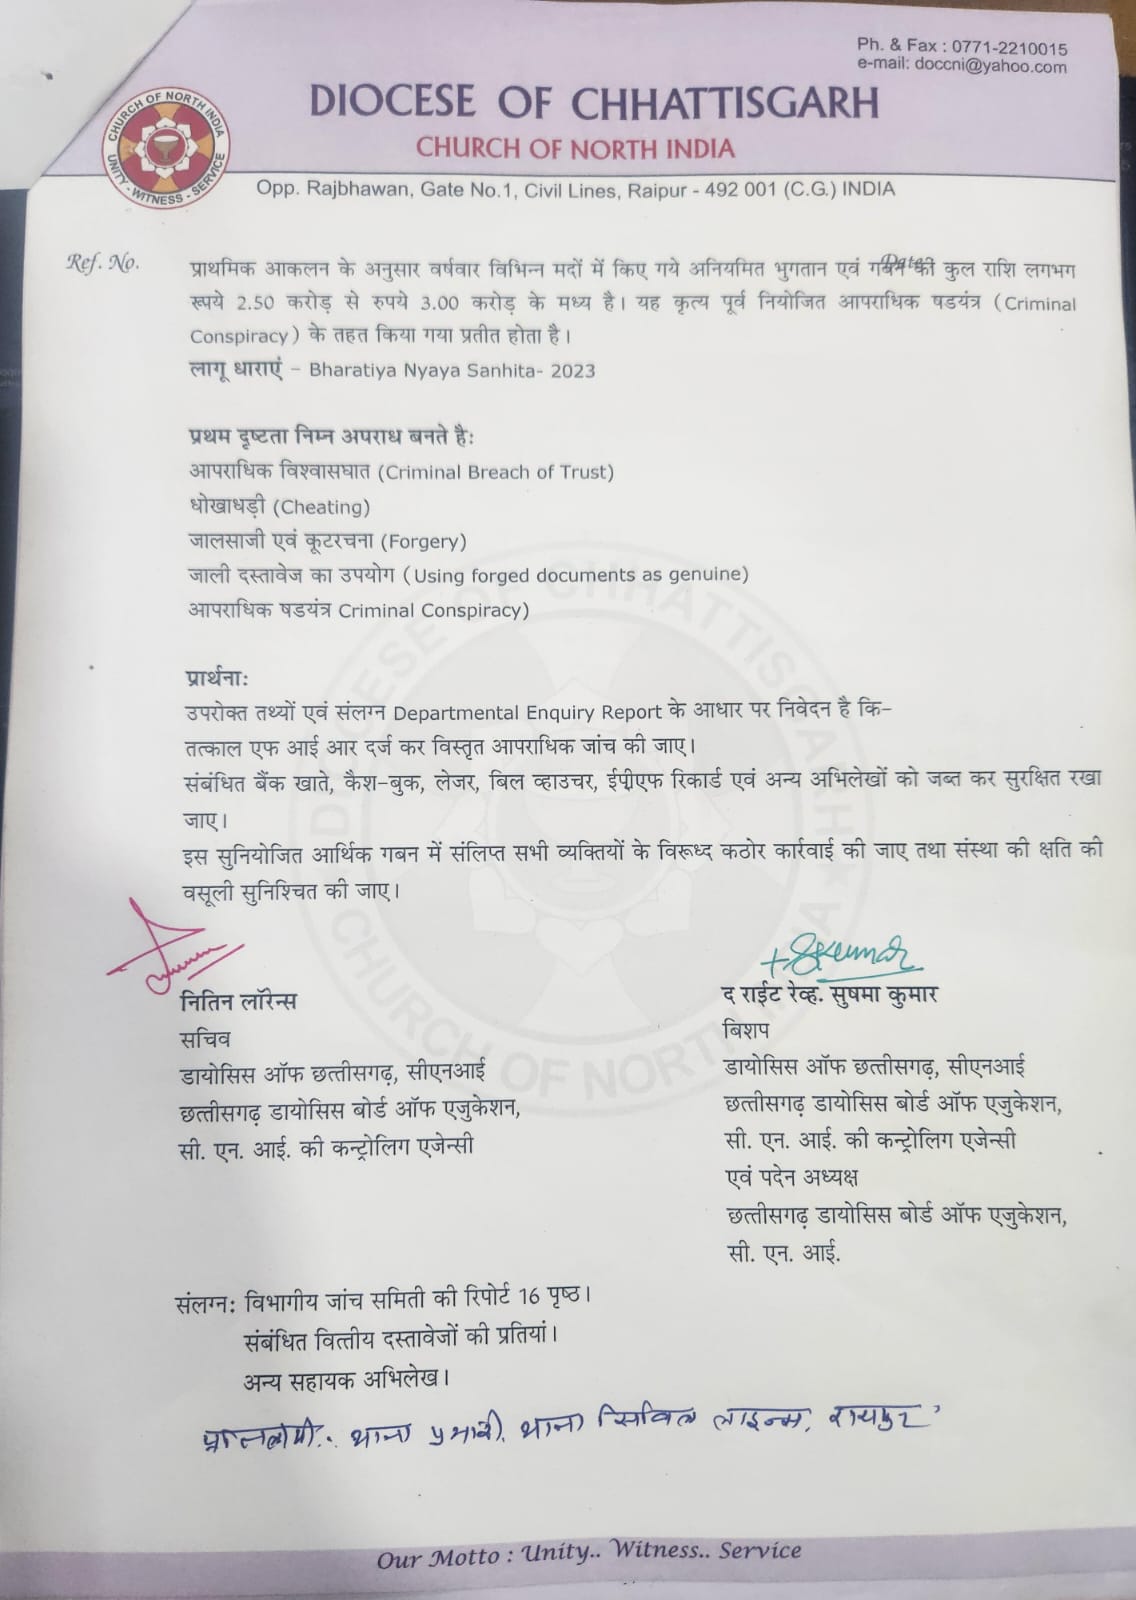 Ph. & Fax : 0771-2210015
e-mail: doccni@yahoo.com
DIOCESE OF CHHATTISGARH
CHURCH OF NORTH INDIA
CHURCH OF NORTH INDIA
UNITY - WITNESS - SERVICE
Opp. Rajbhawan, Gate No.1, Civil Lines, Raipur - 492 001 (C.G.) INDIA
Ref. No.
Date
प्राथमिक आकलन के अनुसार वर्षवार विभिन्न मदों में किए गये अनियमित भुगतान एवं गबन की कुल राशि लगभग
रूपये 2.50 करोड़ से रुपये 3.00 करोड़ के मध्य है। यह कृत्य पूर्व नियोजित आपराधिक षडयंत्र (Criminal
Conspiracy) के तहत किया गया प्रतीत होता है।
लागू धाराएं – Bharatiya Nyaya Sanhita- 2023
प्रथम दृष्टता निम्न अपराध बनते है:
आपराधिक विश्वासघात (Criminal Breach of Trust)
धोखाधड़ी (Cheating)
जालसाजी एवं कूटरचना (Forgery)
जाली दस्तावेज का उपयोग (Using forged documents as genuine)
आपराधिक षडयंत्र Criminal Conspiracy)
प्रार्थना:
उपरोक्त तथ्यों एवं संलग्न Departmental Enquiry Report के आधार पर निवेदन है कि–
तत्काल एफ आई आर दर्ज कर विस्तृत आपराधिक जांच की जाए।
संबंधित बैंक खाते, कैश–बुक, लेजर, बिल व्हाउचर, ईपीएफ रिकार्ड एवं अन्य अभिलेखों को जब्त कर सुरक्षित रखा
जाए।
इस सुनियोजित आर्थिक गबन में संलिप्त सभी व्यक्तियों के विरूध्द कठोर कार्रवाई की जाए तथा संस्था की क्षति की
वसूली सुनिश्चित की जाए।
नितिन लॉरेन्स
सचिव
डायोसिस ऑफ छत्तीसगढ़, सीएनआई
छत्तीसगढ़ डायोसिस बोर्ड ऑफ एजुकेशन,
सी. एन. आई. की कन्ट्रोलिग एजेन्सी
+ SKumar
द राईट रेव्ह. सुषमा कुमार
बिशप
डायोसिस ऑफ छत्तीसगढ़, सीएनआई
छत्तीसगढ़ डायोसिस बोर्ड ऑफ एजुकेशन,
सी. एन. आई. की कन्ट्रोलिग एजेन्सी
एवं पदेन अध्यक्ष
छत्तीसगढ़ डायोसिस बोर्ड ऑफ एजुकेशन,
सी. एन. आई.
संलग्न: विभागीय जांच समिती की रिपोर्ट 16 पृष्ठ।
संबंधित वित्तीय दस्तावेजों की प्रतियां।
अन्य सहायक अभिलेख।
थाना प्रभारी, थाना सिविल लाइन्स, रायपुर
DIOCESE OF CHHATTISGARH
CHURCH OF NORTH INDIA
Our Motto : Unity.. Witness.. Service